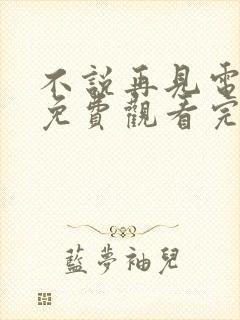 不說再見電
免費觀看完
藍夢袖兒